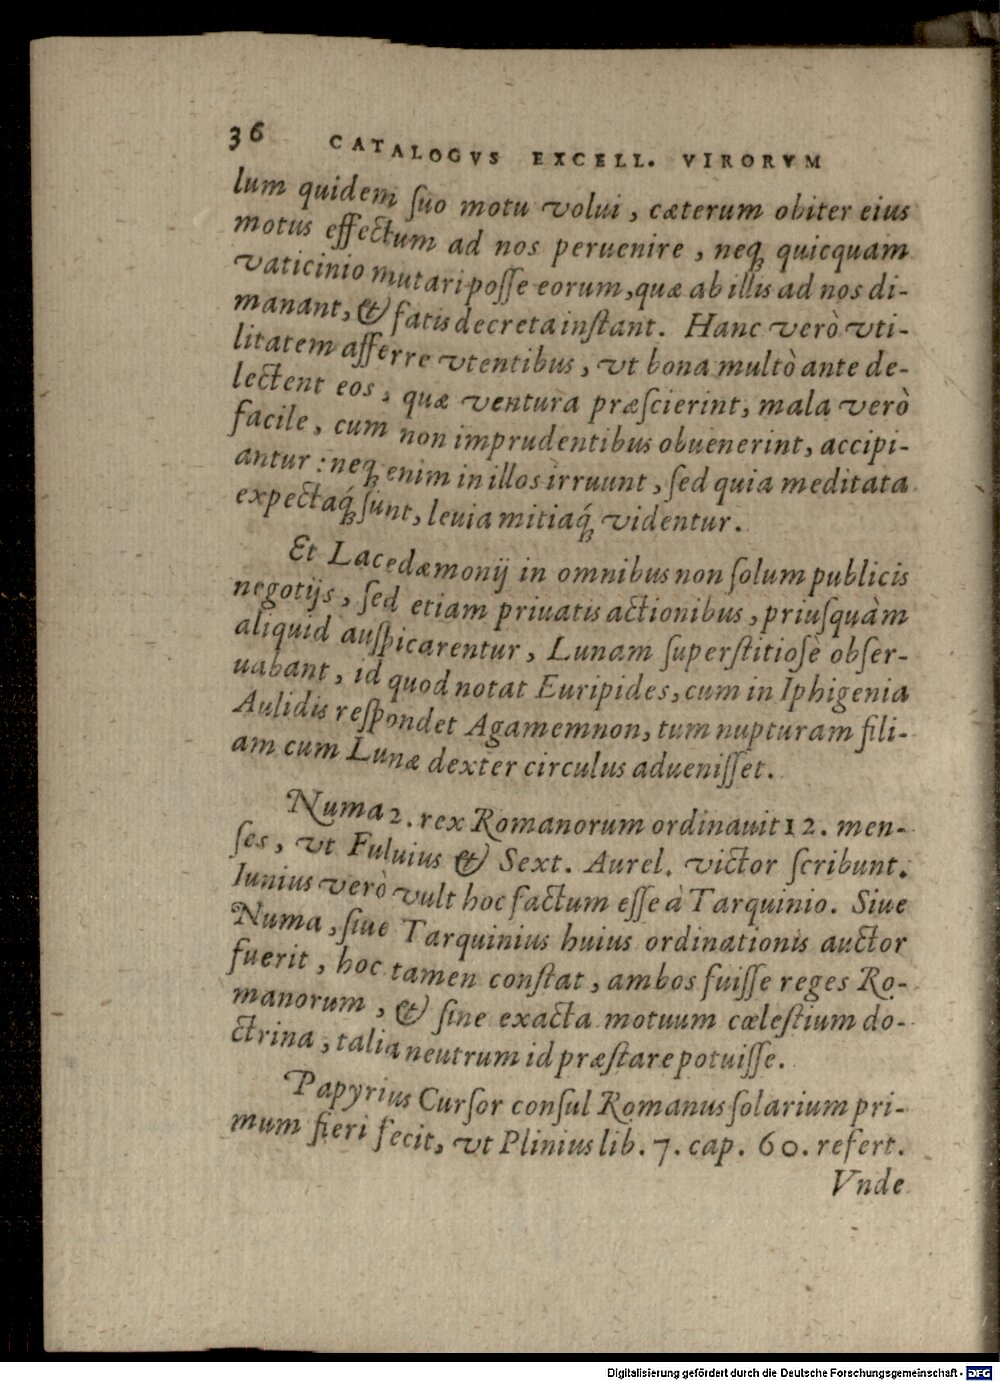 36 CATALOGVS EXCELL. VIRORVM
lum quidem ſuo motu volui, cæterum obiter eius
motus effectum ad nos peruenire, neq́; quicquam
vaticinio mutari poſſe eorum, quæ ab illis ad nos di-
manant, & fatis decreta inſtant. Hanc verò vti-
litatem afferre vtentibus, vt bona multò ante de-
lectent eos, quæ ventura præſcierint, mala verò
facile, cum non imprudentibus obuenerint, accipi-
antur: neq; enim in illos irruunt, ſed quia meditata
expectaq́; ſunt, leuia mitiaq́; videntur.
Et Lacedæmonij in omnibus non ſolum publicis
negotijs, ſed etiam priuatis actionibus, priuſquàm
aliquid auſpicarentur, Lunam ſuperſtitioſè obſer-
uabant, id quod notat Euripides, cum in Iphigenia
Aulidis reſpondet Agamemnon, tum nupturam fili-
am cum Lunæ dexter circulus adueniſſet.
Numa 2. rex Romanorum ordinauit 12. men-
ſes, vt Fuluius & Sext. Aurel. victor ſcribunt.
Iunius verò vult hoc factum eſſe à Tarquinio. Siue
Numa, ſiue Tarquinius huius ordinationis auctor
fuerit, hoc tamen conſtat, ambos fuiſſe reges Ro-
manorum, & ſine exacta motuum cœleſtium do-
ctrina, talia neutrum id præſtare potuiſſe.
Papyrius Curſor conſul Romanus ſolarium pri-
mum fieri fecit, vt Plinius lib. 7. cap. 60. refert.
Vnde
Digitalisierung gefördert durch die Deutsche Forschungsgemeinschaft - DFG